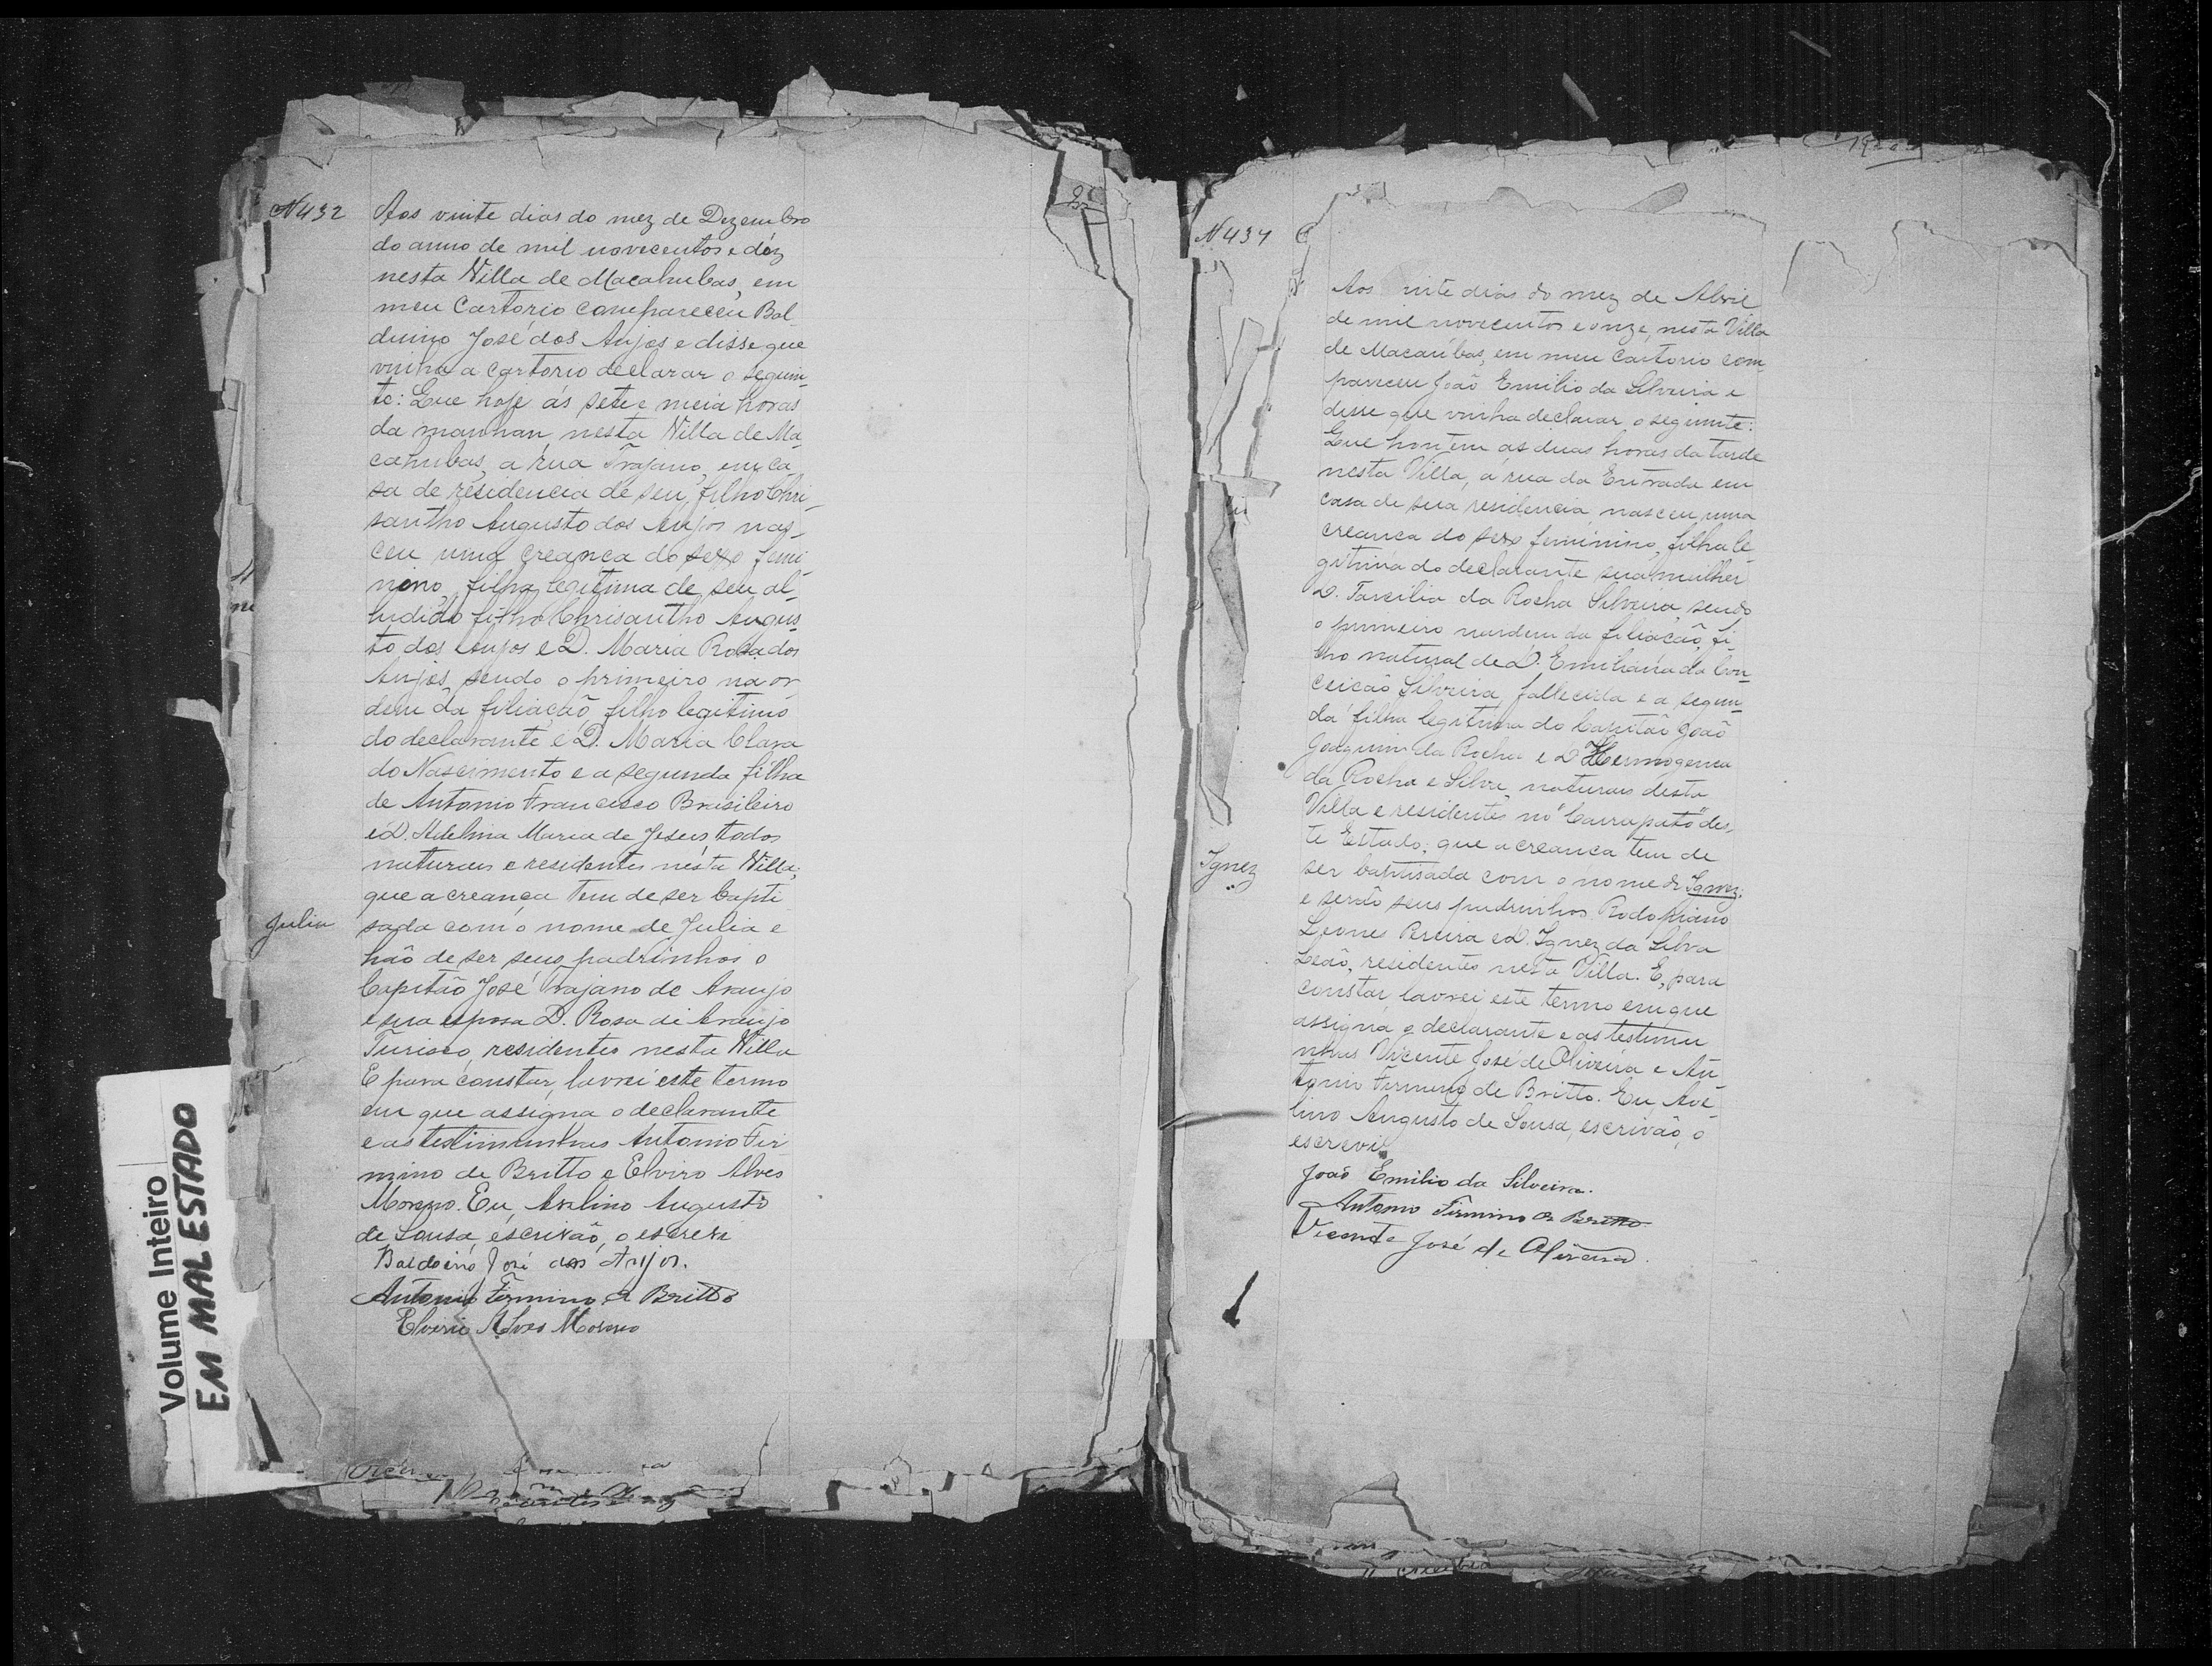 N 432
Aos vinte dias do mez de Dezembro
do anno de mil novecentos e déz
nesta Villa de Macahubas, em
meu Cartorio compareceu Bal-
duino José dos Anjos e disse que
vinha a cartorio declarar o seguin-
te: Que hoje ás sete e meia horas
da manhan, nesta Villa de Ma-
cahubas, a rua Trajano, em ca-
sa de residencia de seu filho Chri-
santho Augusto dos Anjos nas-
ceu uma creança do sexo femi-
nino, filha legitima de seu al-
ludido filho Chrisantho Augus-
to dos Anjos e D. Maria Rosa dos
Anjos, sendo o primeiro na or-
dem da filiação filho legitimo
do declarante e D. Maria Clara
do Nascimento e a segunda filha
de Antonio Francisco Brasileiro
e D. Adelina Maria de Jesus todos
naturaes e residentes nesta Villa;
que a creança tem de ser bapti-
Julia
sada com o nome de Julia e
hão de ser seus padrinhos o
Capitão José Trajano de Araujo
e sua esposa D. Rosa de Araujo
residentes nesta Villa
E para constar, lavrei este termo
em que assigna o declarante
e as testimunhas Antonio Fir-
mino de Britto e Elviro Alves
Moreno. Eu, Avelino Augusto
de Sousa, escrivão, o escrevi
Baldoino José dos Anjos.
Antonio Firmino de Britto
Elviro Alves Moreno
Volume Inteiro
EM MAL ESTADO
N 434
Aos inte dias do mez de Abril
de mil novecentos e onze, nesta Villa
de Macaúbas, em meu Cartorio com-
pareceu João Emilio da Silveira e
disse que vinha declarar o seguinte:
Que hontem, as duas horas da tarde
nesta Villa, á rua da Entrada em
casa de sua residencia, nasceu uma
creança do sexo feminino, filha le-
gitima do declarante sua mulher
D. Tarcilia da Rocha Silveira, sendo
o primeiro na ordem da filiação, fi-
lho natural de D. Emiliana da Con-
ceição Silveira, fallecida e a segun-
da filha legitima do Capitão João
Joaquim da Rocha e D. Hermogenea
da Rocha e Silva, naturaes desta
Villa e residentes no "Carrapato" des-
te Estado; que a creança tem de
Ignez
ser baptisada com o nome de Ignez;
e serão seus padrinhos Rodopiano
Leones Pereira e D. Ignez da Silva
Leão, residentes nesta Villa. E, para
constar, lavrei este termo em que
assigna o declarante e as testimu-
nhas Vicente José de Oliveira e An-
tonio Firmino de Britto. Eu, Ave-
lino Augusto de Sousa, escrivão, o
escrevi.
João Emilio da Silveira.
Antonio Firmino de Britto
Vicente José de Oliveira